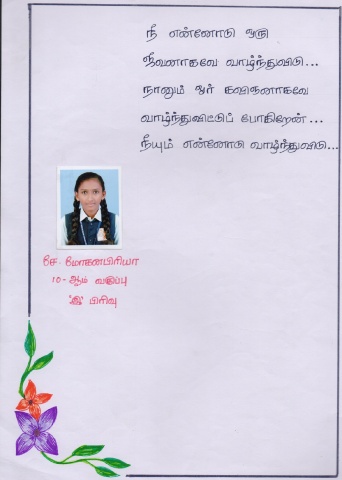 நீ என்னோடு ஒரு
ஜீவனாகவே வாழ்ந்துவிடு...
நானும் ஓர் கவிஞனாகவே
வாழ்ந்துவிட்டுப் போகிறேன்...
நீயும் என்னோடு வாழ்ந்துவிடு...
சே. மோகனபிரியா
10-ஆம் வகுப்பு
'இ' பிரிவு